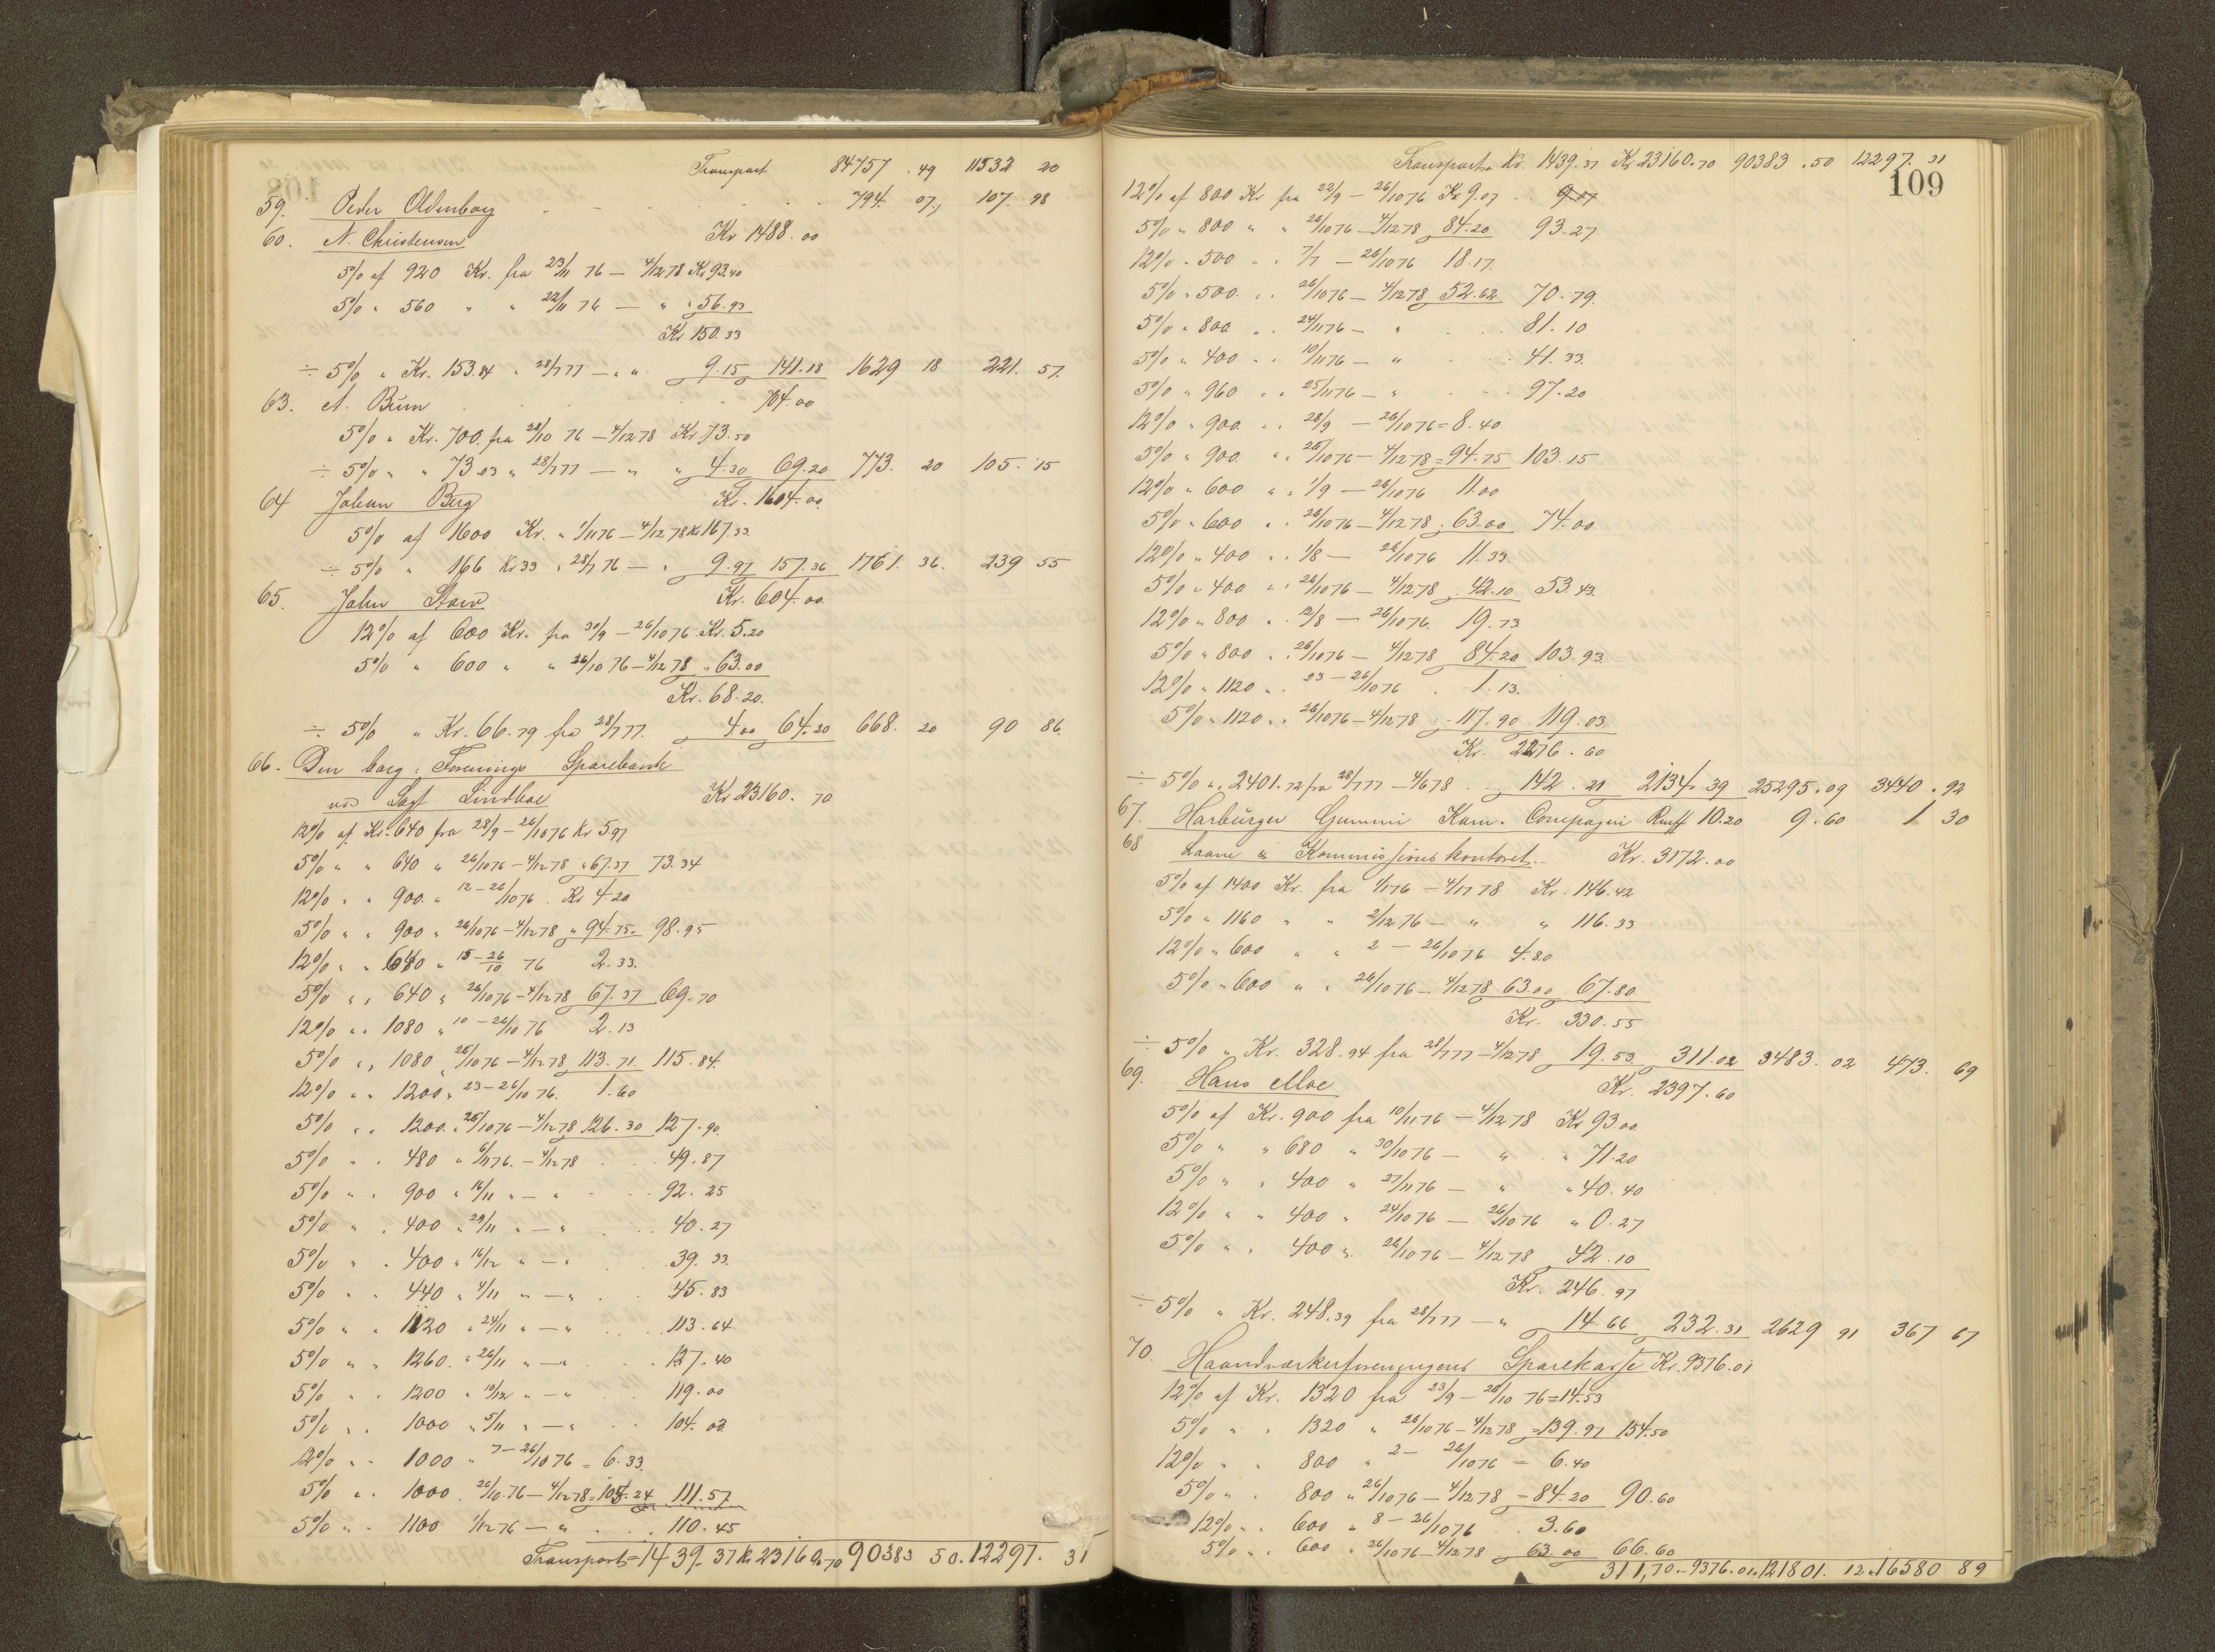 Transport 84757.49 11532 20
59. Peder Oldenborg 794.07 107.98
60. N. Christensen Kr 1488.00
5% af 920 Kr. fra 23/11 76 — 4/12 78 Kr 93.40
5% " 560 " " 22/11 76 — " " 56.93
Kr 150.33
÷ 5% " Kr. 153.84 " 28/7 77 — " " 9.15 141.18 1629 18 221.57
63. A. Buün 704.00
5% " Kr. 700. fra 28/10 76 — 4/12 78 Kr 73.50
÷ 5% " " 73.03 " 28/7 77 — " " 4.30 69.20 773.20 105.15
64 Johan Berg Kr. 1604.00
5% af 1600 Kr. " 1/11 76 — 4/12 78 Kr 167.33
÷ 5% " 166 Kr 33 " 28/7 76 — " 9.97 157.36 1761.36. 239 55
65. John Staw Kr. 604.00
12% af 600 Kr. fra 30/9 — 26/10 76 Kr. 5.20
5% " 600 " " 26/10 76 — 4/12 78 " 63.00
Kr. 68.20.
÷ 5% " Kr. 66.79 fra 28/7 77. 4.00 64.20 668.20 90 86.
66. Den borg: Forenings Sparebank
Kr 23160.70
12% af Kr. 640 fra 28/9 — 26/10 76 Kr 5.97
5% " " 640 " 26/10 76 — 4/12 78 " 67.37 73.34
12% " " 900. " 12 — 26/10 76. Kr 4.20
5% " " 900 " 26/10 76 — 4/12 78 " 94.75. 98.95
12% " " 640 " 15 — 26/10 76 2.33.
5% " " 640 " 26/10 76 — 4/12 78 67.37 69.70
12% " " 1080 " 10 — 26/10 76 2.13
5% " " 1080 " 26/10 76 — 4/12 78 113.71. 115.84.
12% " " 1200 " 23 — 26/10 76. 1.60
5% " " 1200. " 26/10 76 — 4/12 78 126.30 127.90.
5% " " 480 " 6/11 76. — 4/12 78 49.87
5% " " 900 " 16/11 " — " 92.25
5% " " 400 " 29/11 " — " 40.27
5% " " 400 " 16/12 " — " 39.33.
5% " " 440 " 4/11 " — " 45.83
5% " " 1120 " 24/11 " — " 113.64
5% " " 1260. " 26/11 " — " 127.40
5% " " 1200 " 10/12 " — " 119.00
5% " " 1000 " 5/11 " — " 104.02
12% " " 1000 " 7 — 26/10 76 = 6.33.
5% " " 1000. 26/10.76 — 4/12 78 = 105.24 111.57
5% " " 1100 1/12 76 — " 110.45
Transport = 1439.37 Kr 23160.70 90383 50. 12297. 31
Transport Kr. 1439.37 Kr 23160.70 90383.50 12297.31
109
12% af 800 Kr fra 22/9 — 26/10 76 Kr 9.07 9.07
5% " 800 " " 26/10 76 — 4/12 78 84.20 93.27
12% " 500 " " 7/7 — 26/10 76 18.17.
5% " 500. " " 26/10 76 — 4/12 78 52.62 70.79.
5% " 800. " " 24/11 76 — " 81.10
5% " 400 " " 10/11 76 — " 41.33.
5% " 960 " " 25/11 76 — " 97.20
12% " 900. " " 28/9 — 26/10 76 = 8.40
5% " 900. " " 26/10 76 — 4/12 78 = 94.75 103.15
12% " 600 " " 1/9 — 26/10 76 11.00
5% " 600 " " 26/10 76 — 4/12 78. 63.00 74.00
12% " 400 " " 1/8 — 26/10 76 11.33.
5% " 400 " " 26/10 76 — 4/12 78. 42.10 53.43.
12% " 800 " " 12/8 — 26/10 76. 19.73
5% " 800 " " 26/10 76 — 4/12 78 84.20 103.93.
12% " 1120 " " 23 — 26/10 76. 1.13.
5% " 1120 " " 26/10 76 — 4/12 78. 117.90 119.03.
Kr. 2276.60
÷ 5% ". 2401.72 fra 28/7 77 — 4/6 78. 142.21 2134.39 25295.09 3440.92
67. Harbürger Gummi Kam. Compagni 10.20 9.60 1 30
68 Laane & Kommissions kontoret. Kr. 3172.00
5% af 1400 Kr. fra 1/11 76 — 4/12 78 Kr. 146.42
5% " 1160 " " 2/12 76 — " " 116.33
12% " 600 " " 2 — 26/10 76 4.80
5% " 600 " " 26/10 76 — 4/12 78 63.00 67.80
Kr. 330.55
÷ 5% " Kr. 328.94 fra 28/7 77 — 4/12 78 19.53 311.02 3483.02 473. 69
69. Hans Moe Kr. 2397.60
5% af Kr. 900 fra 10/11 76 — 4/12 78 Kr 93.00
5% " " 680 " 30/10 76 — " " 71.20
5% " " 400 " 27/11 76 — " " 40.40
12% " " 400 " 24/10 76 — 26/10 76 " 0.27
5% " " 400 " 26/10 76 — 4/12 78 42.10
Kr. 246.97
÷ 5% " Kr. 248.39 fra 28/7 77 — " 14.66 232.31 2629 91 367 67
70. Haandværkerforeningens Sparekasse Kr. 9376.01
12% af Kr. 1320 fra 23/9 — 26/10 76 = 14.53
5% " " 1320 " 26/10 76 — 4/12 78 = 139.97 154.50
12% " " 800 " 2 — 26/10 76 = 6.40
5% " " 800 " 26/10 76 — 4/12 78 = 84.20 90.60
12% " " 600 " 8 — 26/10 76 3.60
5% " " 600 " 26/10 76 — 4/12 78 63.00 66.60
311,70. 9376.01. 121801. 12. 16580 89